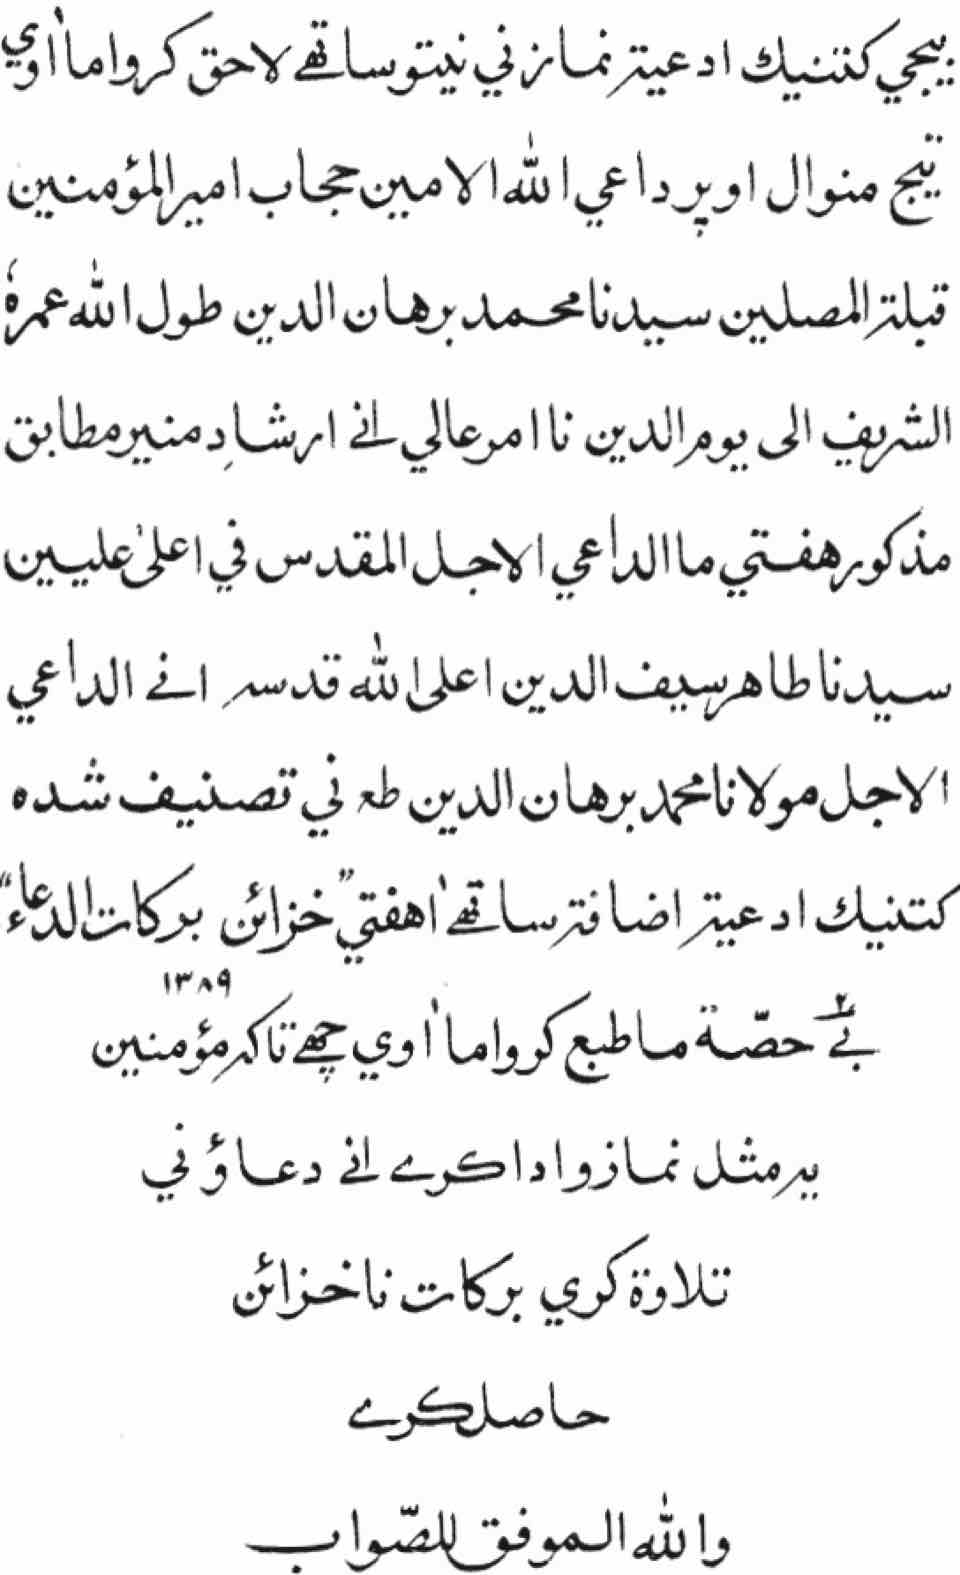 بيجي كتنيك ادعية نماز ني نيتو ساتهے لاحق كرواما اٰوي
تيج منوال اوپر داعي الله الامين حجاب امير المؤمنين
قبلة المصلين سيدنا محمد برهان الدين طول الله عمرهٗ
الشريف الى يوم الدين نا امر عالي انے ارشادِ منير مطابق
مذكور هفتي ما الداعي الاجل المقدس في اعلىٰ عليين
سيدنا طاهر سيف الدين اعلى الله قدسہ انے الداعي
الاجل مولانا محمد برهان الدين طع ني تصنيف شده
كتنيك ادعية اضافة ساتهے اٰ هفتي "خزائن بركات الدعاء"
١٣٨٩
بے ٢ حصّة ما طبع كرواما اٰوي چهے تاكہ مؤمنين
يہ مثل نمازو ادا كرے انے دعاؤ ني
تلاوة كري بركات نا خزائن
حاصل كرے
والله الموفق للصّواب